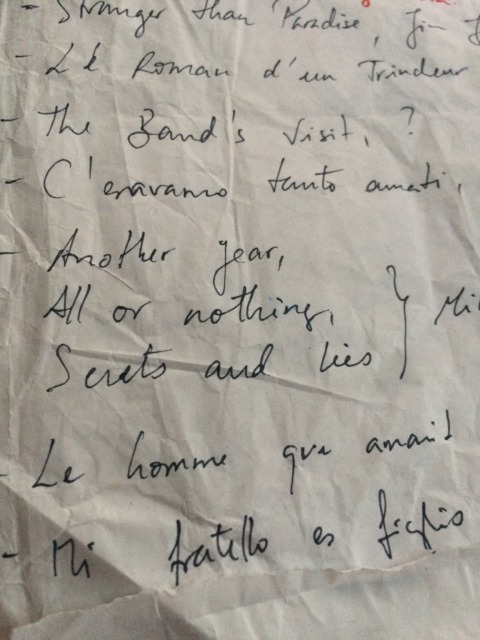 - Stranger than Paradise, Jim J
- Lé Roman d'un Tricheur
- The Band's Visit, ?
- C'eravamo tanto amati,
- Another year,
All or nothing, } Mi
Secrets and lies
- Le homme que amait
- Mi fratello es figlio